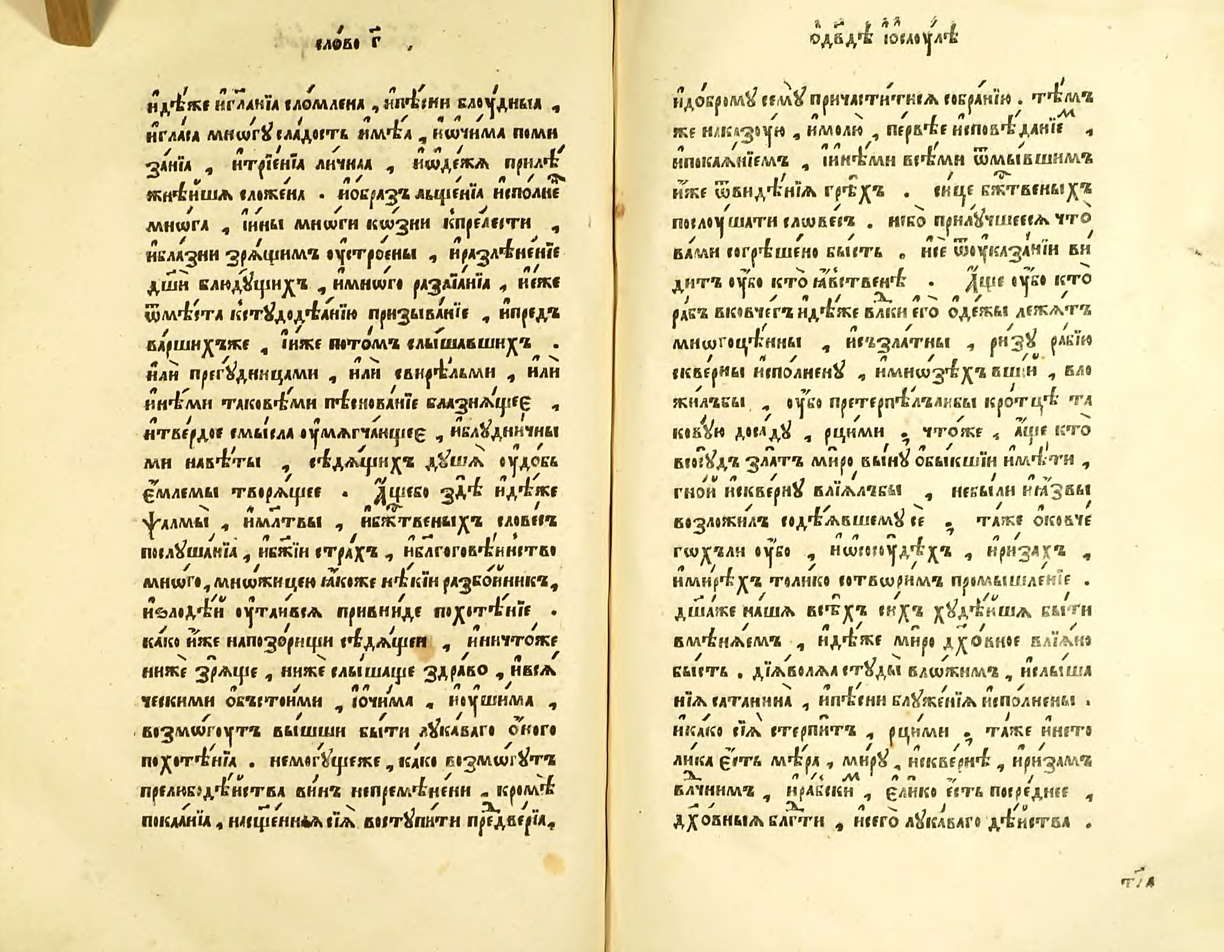 сло́во г҃ .
и҆дѣ́же и҆гла́нїа сло́млена , и҆пѣ́сни блоу́дныа ,
и҆гла́са мно́гу сла́дость и҆мѣ́а , и҆ѡ҆чи́ма поми
за́нїа , и҆тре́нїа ли́чнаа , и҆ѡ҆де́жѧ прилѣ́
жнѣ́йшѧ сложе́на . и҆ѻ҆́бразъ льще́нїа и҆спо́лнє
мнѡ́га , і҆и҆́ны мнѡ́ги кѡ́зни кпре́лести ,
и҆бла́зни зрѧ́щимъ оу҆стро́ены , и҆разлѣ́ненїе
дш҃и блюду́щихъ , и҆мно́гѡ разаїа́нїа , и҆е́же
ѿмѣ́ста кстудодѣ́анїю призыва́нїе , и҆предъ
ва́ршихъже , і҆и҆́же пото́мъ слы́шавшихъ .
и҆лѝ прегу́дницами , и҆лѝ свирѣ́льми , и҆лѝ
и҆нѣ́ми таковѣ́ми пѣснова́нїе блазнѧ́щеє ,
и҆тве́рдое смы́сла оу҆мѧгча́ющеє , и҆блудни́чны
ми навѣ́ты , сѣдѧ́щихъ ду́шѧ оу҆до́бь
є҆́млемы творѧ́щее . А҆́щебо здѣ̀ и҆дѣ́же
ѱалмы̀ , и҆мл҃твы , и҆бж҃твеныхъ слове́съ
послу́шанїа , и҆бж҃їи стра́хъ , и҆бл҃гоговѣ́инство
мно́го , мно́жицею ꙗ҆́коже нѣ́кїи разбо́йникъ ,
и҆ѕлодѣ́й оу҆таи́всѧ привни́де похотѣ́нїе .
ка́ко и҆́же напозо́рищи сѣдѧ́щеи , и҆ничто́же
нижѐ зрѧ́ще , нижѐ слы́шаще здра́во , и҆всѧ́
ческими ѻ҆бъсто́ими , і҆ѻ҆чи́ма , и҆оу҆ши́ма ,
возмо́гоутъ вы́шши бы́ти лука́ваго ѻ҆́ного
похотѣ́нїа . немогу́щеже , ка́ко возмо́гутъ
прелюбодѣ́йства ви́нъ непремѣ́нени , кро́мѣ
покаа́нїа , насщ҃е́нныѧ сїѧ̀ воступи́ти предве́рїа ,
ѻ҆дв҃дѣ і҆ѻ҆слоу́лѣ
и҆до́брому сему̀ причасти́тисѧ собра́нїю . тѣ́мъ
же наказоу́ю , и҆молю̀ , пе́рвѣе и҆сповѣ́данїем ,
и҆покаѧ́нїемъ , і҆и҆нѣ́ми всѣ́ми ѿмы́вшимъ
и҆́же ѿвидѣ́нїѧ грѣ́хъ . си́це бж҃твеныхъ
послоу́шати слове́съ . небо̀ прилу́чшеесѧ что̀
ва́ми согрѣ́шено бы́сть . и҆сѐ ѿоу҆каза́нїи ви́
дитъ оу҆́бо кто̀ ꙗ҆́вственѣ . А҆́ще оу҆́бо кто̀
ра́бъ вковче́гъ и҆дѣ́же вл҃ки е҆го̀ ѻ҆де́жы лежа́тъ
многоцѣ́нны , и҆съзла́тны , ри́зу ра́бїю
скве́рны и҆спо́лнену , и҆мно́зѣхъ вши́й , вло
жи́лъбы , оу҆́бо претерпѣ́лълибы кро́тцѣ та
кову́ю доса́ду , рци́ми ; что́же , а҆́ще кто̀
всосу́дъ зла́тъ ми́ро вы́ну ѻ҆бы́кшїи и҆мѣ́ти ,
гно́й и҆скве́рну влїѧ́лъбы , небы́ли и҆ꙗ҆́звы
возложи́лъ содѣ́ѧвшему сѐ ; та́же ѻ҆ковче́
гѡхъли оу҆́бо , и҆ѡ҆сосоу́дѣхъ , и҆ри́захъ ,
и҆ми́рѣхъ толи́ко сотвори́мъ промышле́нїе .
дш҃а́же на́шѧ всѣ́хъ си́хъ худѣ́йшѧ бы́ти
вмѣнѧ́емъ , и҆дѣ́же ми́ро дх҃о́вное влїѧ́но
бы́сть . дїѧ́волѧ студы̀ вложи́мъ , и҆слы́ша
нїѧ сатанина̀ , и҆пѣ́сни блуже́нїѧ и҆спо́лнены .
и҆ка́ко сїѧ̀ стерпи́тъ , рци́ми ; та́же и҆нето
ли́ка є҆́сть мѣ́ра , ми́ру , и҆скве́рнѣ , и҆ри́замъ
вл҃чнимъ , и҆ра́бским , є҆ли́ко є҆́сть посре́днее ,
дх҃о́вныѧ бл҃гти , и҆сего̀ лука́ваго дѣ́йства .